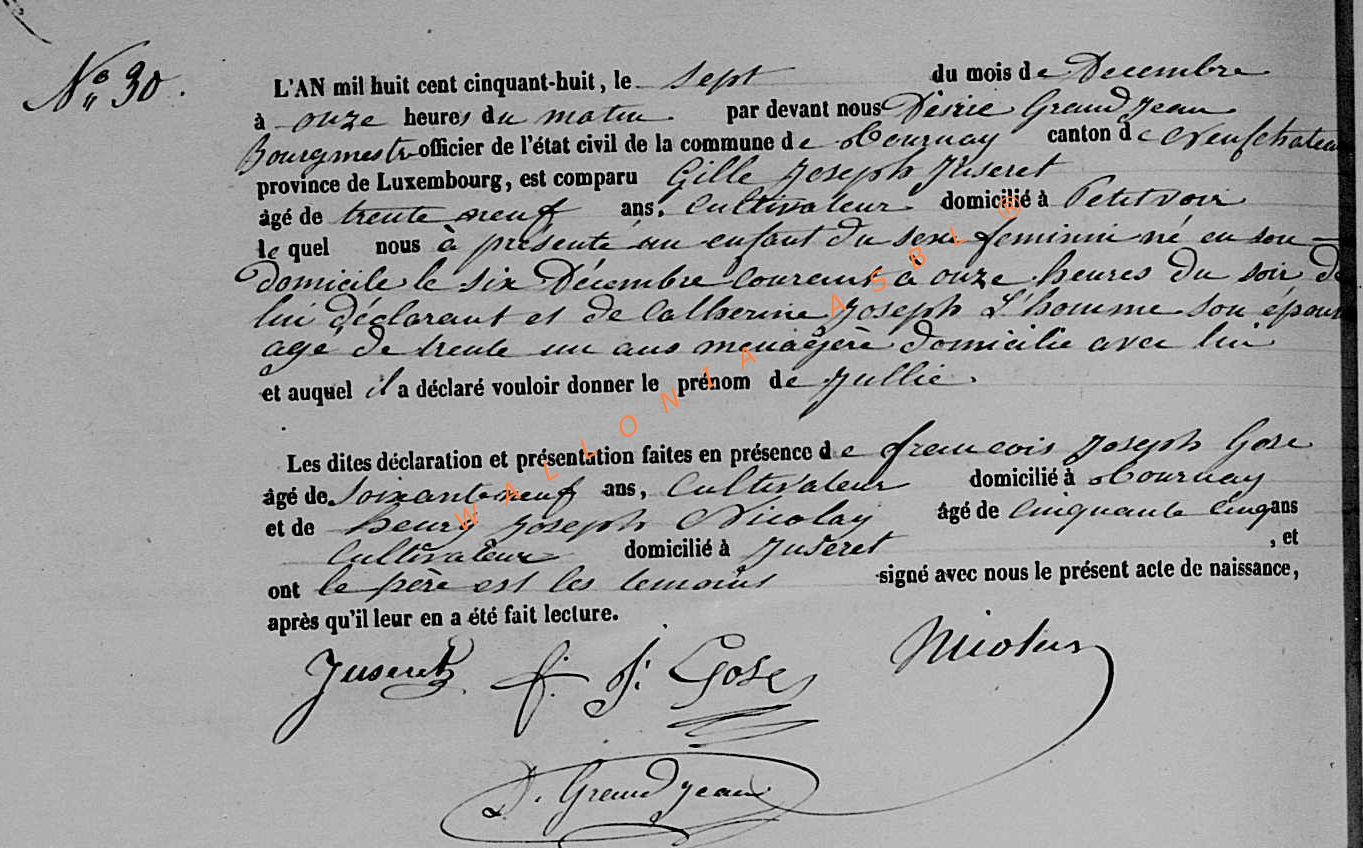 N° 30.
L'AN mil huit cent cinquant-huit, le sept du mois de Decembre
à onze heures du matin par devant nous Désiré Grandjean
Bourgmestre officier de l'état civil de la commune de Tournay canton de Neufchateau
province de Luxembourg, est comparu Gille Joseph Juseret
âgé de trente neuf ans, Cultivateur domicilié à Petitvoir
le quel nous à présenté un enfant du sexe feminin né en son
domicile le six Décembre courant à onze heures du soir de
lui déclarant et de Catherine Joseph L'homme son épouse
agé de trente un ans menagère domicilié avec lui
et auquel il a déclaré vouloir donner le prénom de Jullie.
Les dites déclaration et présentation faites en présence de francois Joseph Gose
âgé de soixante neuf ans, Cultivateur domicilié à Tournay
et de henry Joseph Nicolay âgé de Cinquante Cinq ans
Cultivateur domicilié à Juseret , et
ont le père est les temoins signé avec nous le présent acte de naissance,
après qu'il leur en a été fait lecture.
Juseret f. J. Gose Nicolay
D. Grandjean
WALLONIA ASBL ©